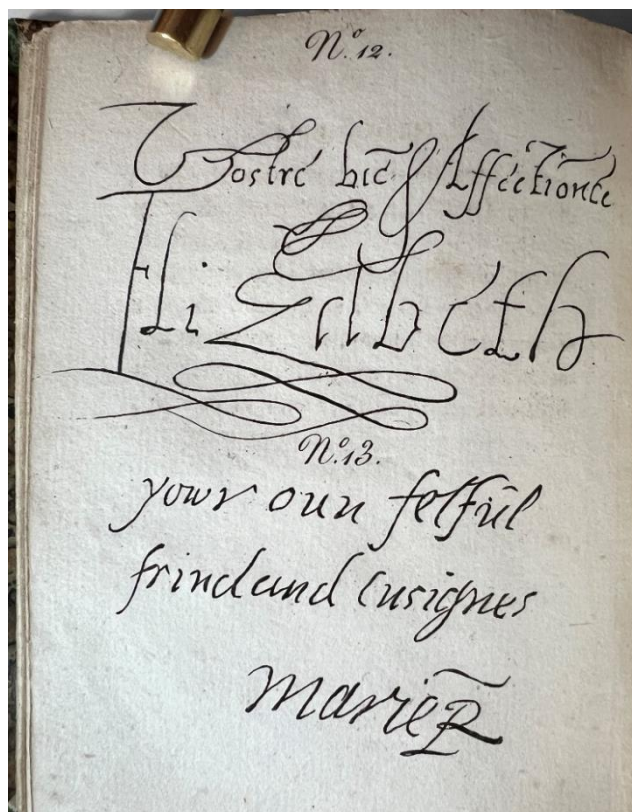 No. 12.
Vostre biē Affectionēe
Elizabeth
No. 13.
yowr oun felful
frind and cusignes
marie R